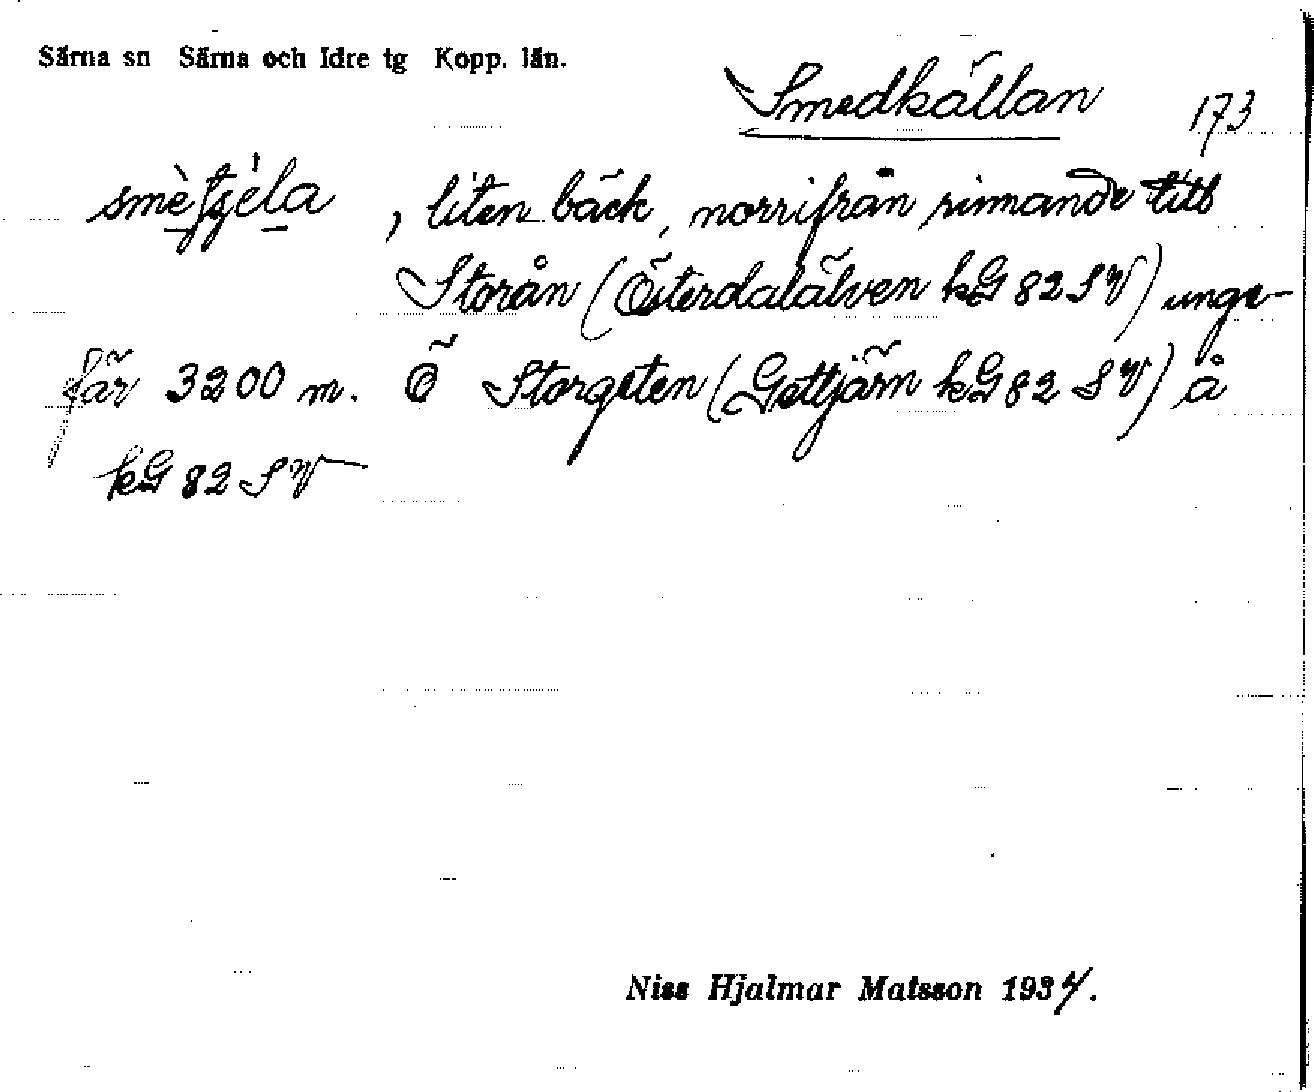 Särna sn Särna och Idre tg Kopp. län.
Smedkällan 173
, liten bäck, norrifrån rinnande till
Storån (Österdalälven kG 82 SV) unge-
fär 3200 m. Ö Storgeten (Gettjärn kG 82 SV) å
kG 82 SV
Niss Hjalmar Matsson 1934.